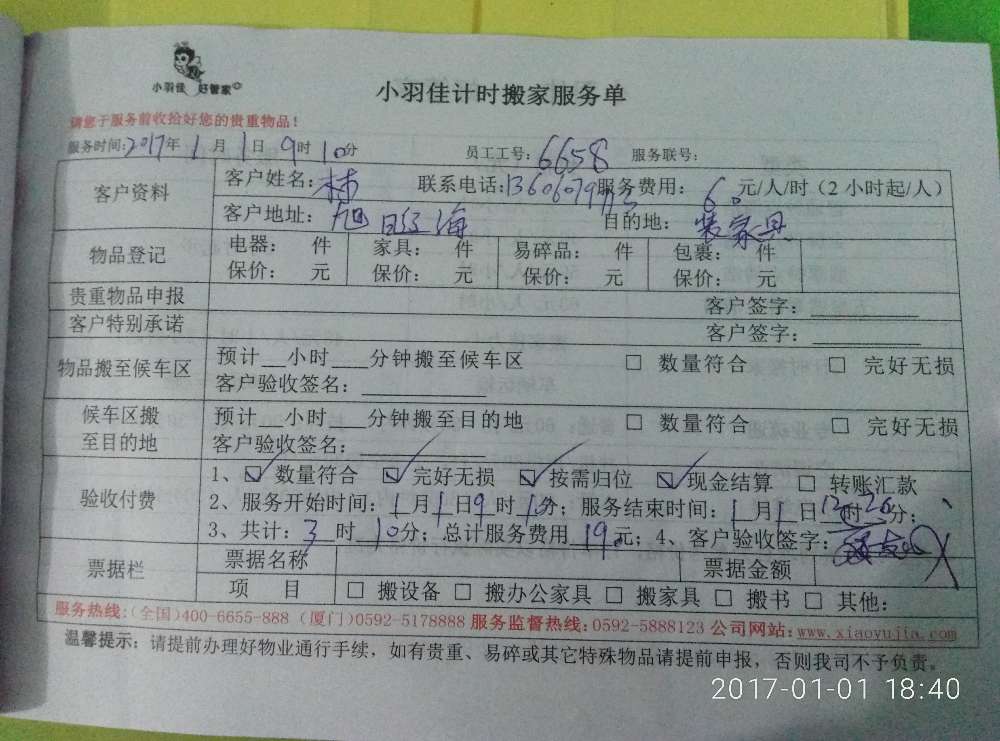 小羽佳 好管家
小羽佳计时搬家服务单
请您于服务前收拾好您的贵重物品！
服务时间：2017年1月1日9时10分 员工工号：6658 服务联号：
客户资料 客户姓名：林 联系电话： 服务费用：60元/人/时（2小时起/人）
客户地址：旭日海 目的地：装家具
物品登记 电器： 件 家具： 件 易碎品： 件 包裹： 件
保价： 元 保价： 元 保价： 元 保价： 元
贵重物品申报 客户签字：
客户特别承诺 客户签字：
物品搬至候车区 预计__小时___分钟搬至候车区 □ 数量符合 □ 完好无损
客户验收签名：
候车区搬至目的地 预计__小时___分钟搬至目的地 □ 数量符合 □ 完好无损
客户验收签名：
验收付费 1、☑数量符合 ☑完好无损 ☑按需归位 ☑现金结算 □ 转账汇款
2、服务开始时间：1月1日9时10分；服务结束时间：1月1日12时26分；
3、共计：3时10分；总计服务费用19元；4、客户验收签字：
票据栏 票据名称 票据金额
项 目 □ 搬设备 □ 搬办公家具 □ 搬家具 □ 搬书 □ 其他：
服务热线：(全国)400-6655-888 (厦门)0592-5178888 服务监督热线：0592-5888123 公司网站：www.xiaoyujia.com
温馨提示：请提前办理好物业通行手续，如有贵重、易碎或其它特殊物品请提前申报，否则我司不予负责。
2017-01-01 18:40